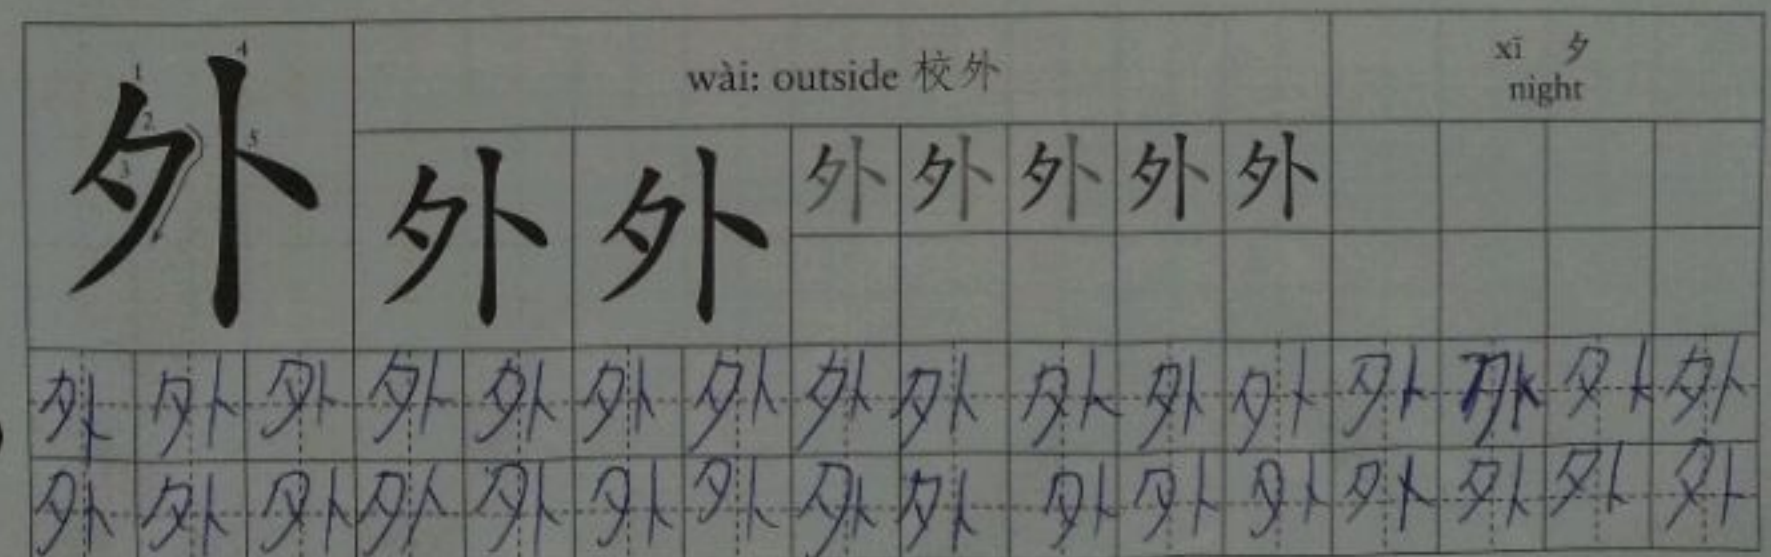 外 1 2 3 4 5
wài: outside 校外
xī 夕
night
外 外 外 外 外 外 外
外 外 外 外 外 外 外 外 外 外 外 外 外 外 外 外
外 外 外 外 外 外 外 外 外 外 外 外 外 外 外 外